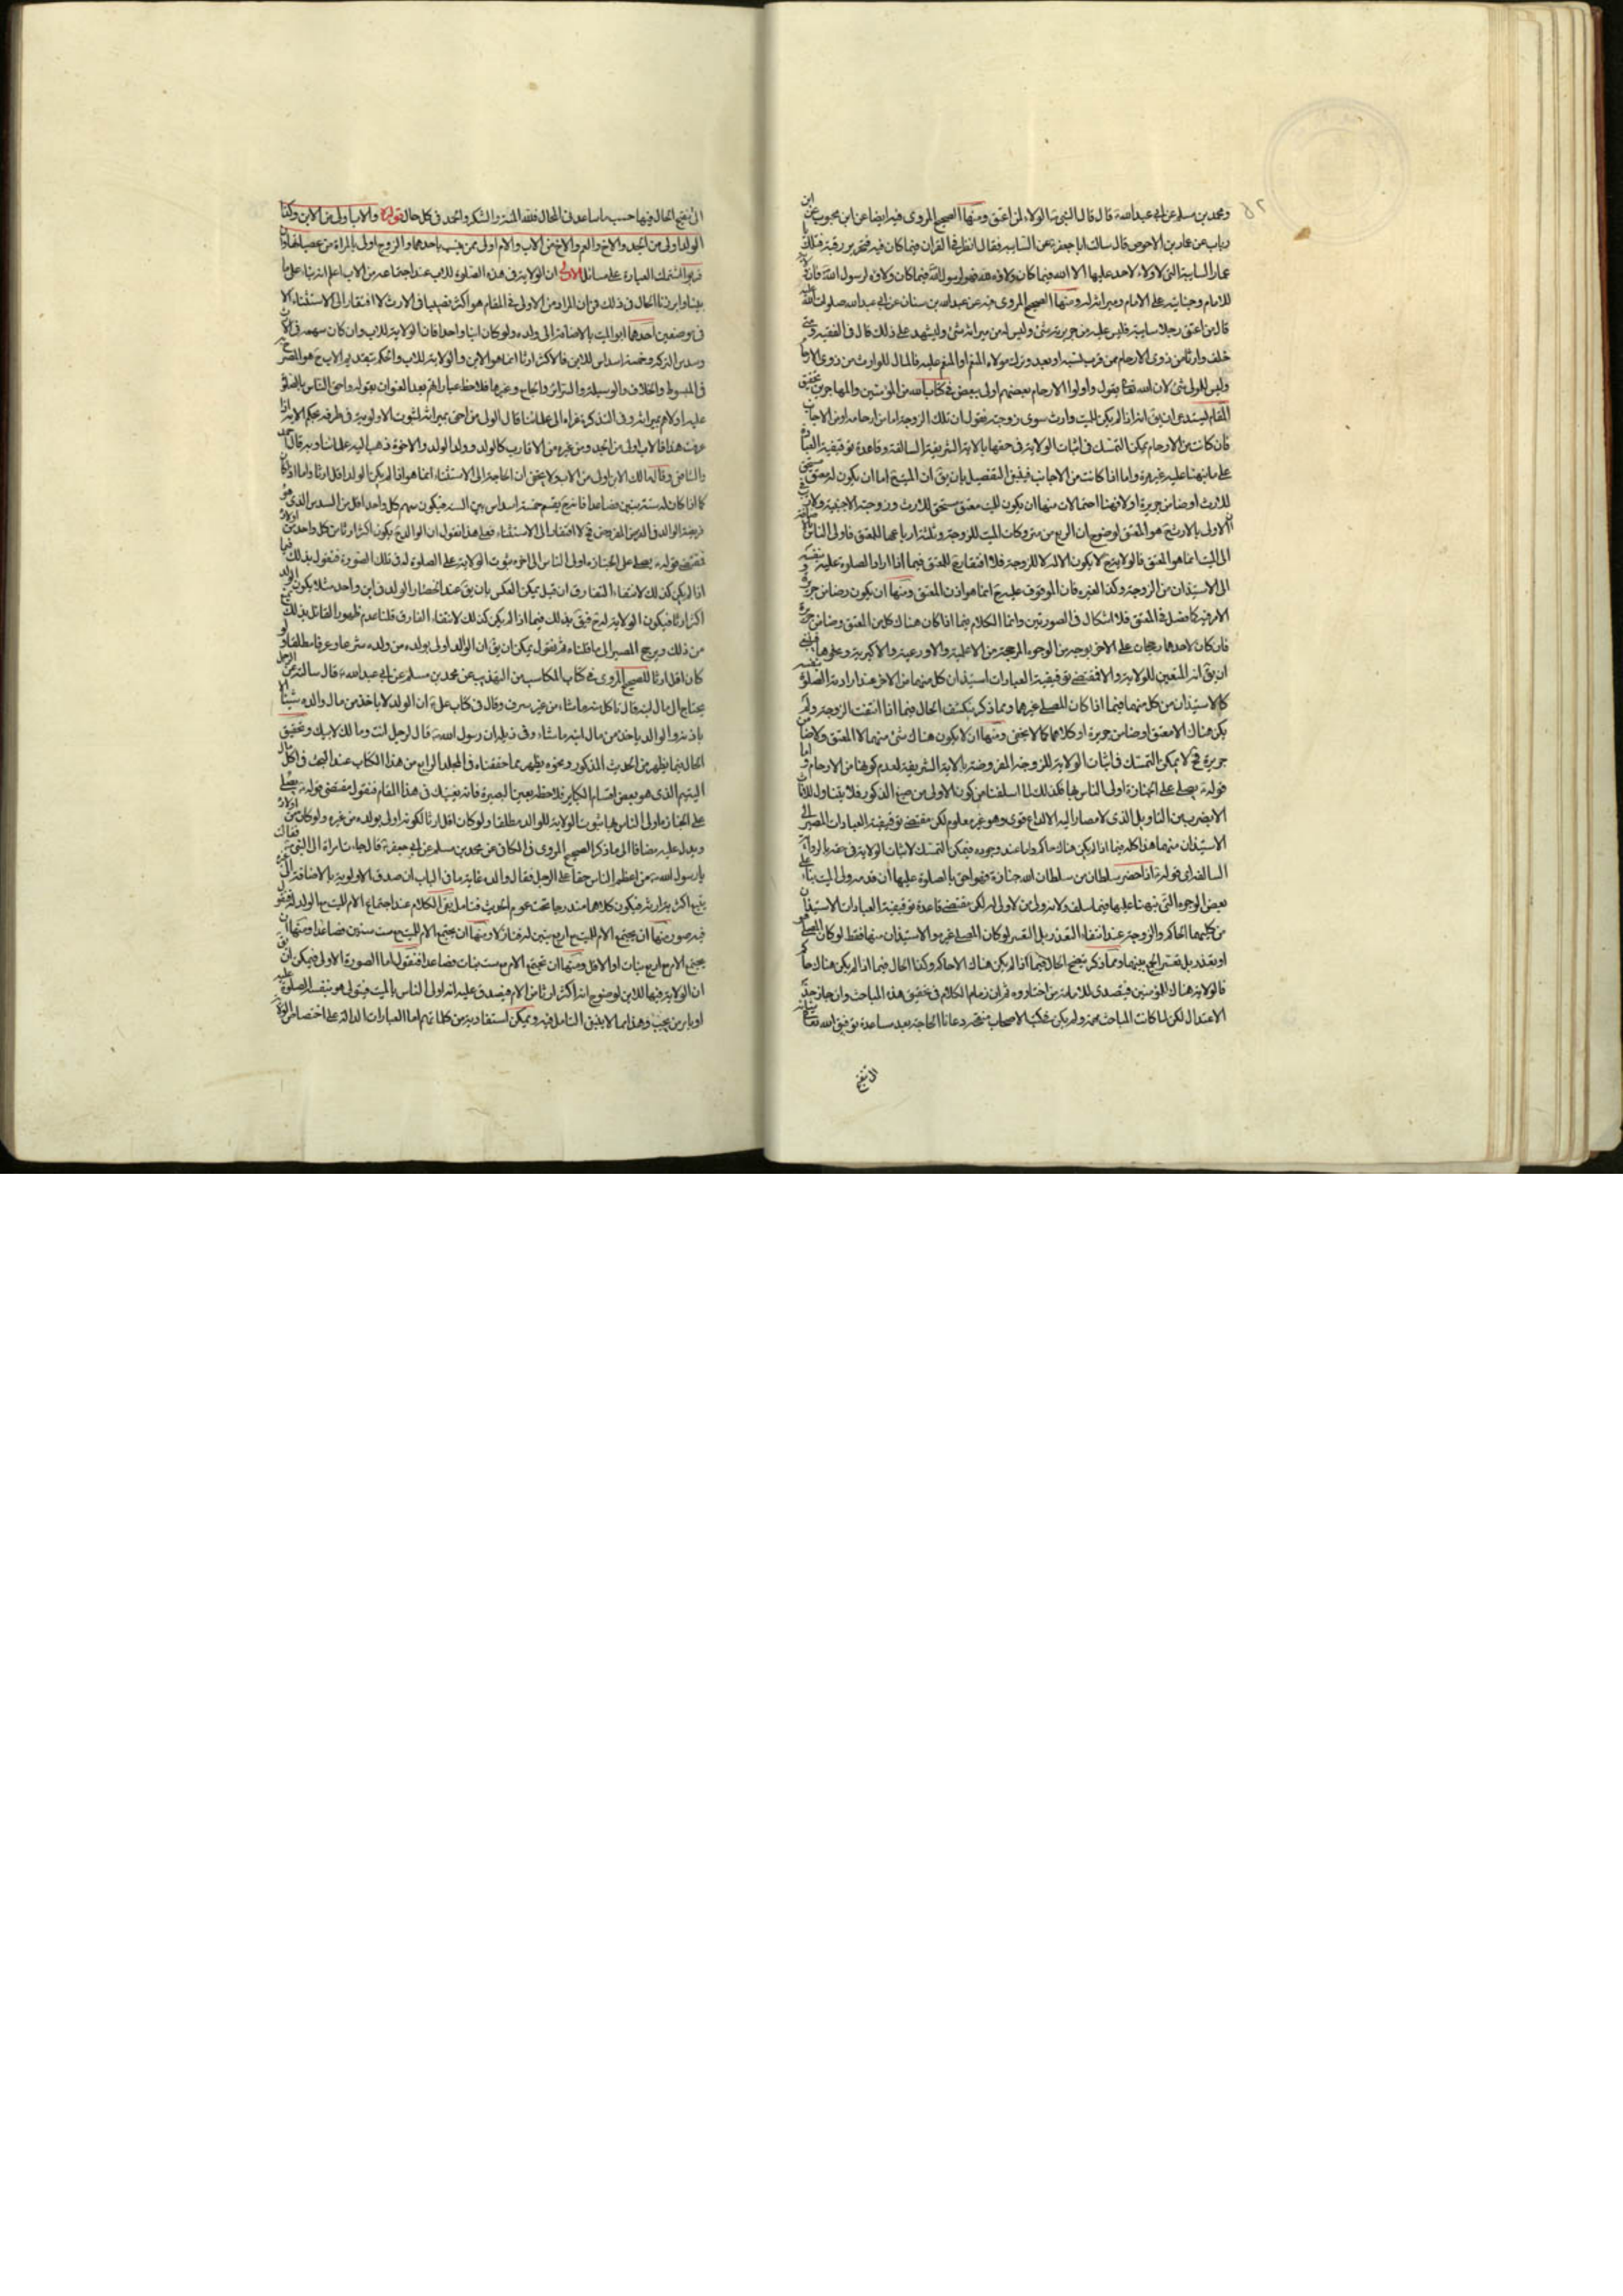 ومحمد بن مسلم عن ابي عبد الله قال قال النبي الولاء لمن اعتق ومنها الصحيح المروي فيه ايضا عن ابن محبوب عن ابن
رياب عن عمار بن الاحوص قال سالت ابا جعفر عن السايبة فقال انظر في القران فما كان فيه فتحرير رقبة فتلك يا
عمار السايبة التي لا ولاء لاحد عليها الا الله فما كان ولاؤه لله فهو لرسول الله فما كان ولاؤه لرسول الله فان ولاءه
للامام وجنايته على الامام وميراثه له ومنها الصحيح المروي فيه عن عبد الله بن سنان عن ابي عبد الله صلوات الله عليه
قال من اعتق رجلا سايبة فليس عليه من جريرته شئ وليس له من ميراثه شئ وليشهد على ذلك قال في الفقيه ومتى
خلف وارثا من ذوي الارحام ممن قرب نسبه او بعد وترك مولاه المنعم او المنعم عليه فالمال للوارث من ذوي الارحام
وليس للمولى شئ لان الله تعالى يقول واولوا الارحام بعضهم اولى ببعض في كتاب الله من المؤمنين والمهاجرين تحقيق
المقام يستدعي ان يق انه اذا لم يكن للميت وارث سوى زوجته نقول ان تلك الزوجة اما من ارحامه او من الاجانب
فان كانت من الارحام يمكن التمسك في اثبات الولاية في حقها بالاية الشريفة السالفة وقاعدة توقيفية العبادة
على ما نبهنا عليه غير مرة واما اذا كانت من الاجانب فينبغي التفصيل بان يق ان الميت اما ان يكون له معتق مستحق
للارث او ضامن جريرة او لا فهنا احتمالات منها ان يكون للميت معتق مستحق للارث وزوجته الاجنبية ولا ريب في
ان الاولى بالارث ح هو المعتق لوضوح ان الربع من متروكات الميت للزوجة وثلثة ارباعها للمعتق فاولى الناس
الى الميت انما هو المعتق فالولاية ح لا يكون الا له لا للزوجة فلا افتقار ح للمعتق فيما اذا اراد الصلوة عليه بنفسه
الى الاستيذان من الزوجة وكذا الغير فان الموقوف عليه ح انما هو اذن المعتق ومنها ان يكون ضامن جريرة
الامر فيه كما فصل في المعتق فلا اشكال في الصورتين وانما الكلام فيما اذا كان هناك كل من المعتق وضامن جريرة
فان كان لاحدهما رجحان على الاخر بوجه من الوجوه المرجحة من الاعلمية والاورعية والاكبرية وغيرها فينبغي
ان يق انه المتعين للولاية والا فمقتضى توقيفية العبادات استيذان كل منهما من الاخر عند ارادته الصلوة بنفسه
كالاستيذان من كل منهما فيما اذا كان المصلي غيرهما ومما ذكر ينكشف الحال فيما اذا انتفت الزوجة ولم
يكن هناك الا معتق او ضامن جريرة او كلاهما كما لا يخفى ومنها ان لا يكون هناك شئ منهما لا المعتق ولا ضامن
جريرة فح لا يمكن التمسك في اثبات الولاية للزوجة المفروضة بالاية الشريفة لعدم كونها من الارحام واما
قوله يصلي على الجنازة اولى الناس بها فكذلك لما اسلفنا من كون الاولى من صيغ الذكور فلا يتناول للاناث
الا بضرب من التاويل الذي لا مصار اليه الا لداع قوي وهو غير معلوم لكن مقتضى توقيفية العبادات المصير الى
الاستيذان منها هذا كله فيما اذا لم يكن هناك حاكم واما عند وجوده فيمكن التمسك لاثبات الولاية في حقه بالرواية
السالفة اي قوله اذا حضر سلطان من سلطان الله جنازة فهو احق بالصلوة عليها ان قدمه ولي الميت بناء على
بعض الوجوه التي نبهنا عليها فيما سلف ولانه ولي من لا ولي له لكن مقتضى قاعدة توقيفية العبادات الاستيذان
من كليهما الحاكم والزوجة عند انتفاء التعذر بل التعسر لو كان المصلي غيره والاستيذان منها فقط لو كان المصلي هو
او بتعذر بل تعسر الجمع بينهما ومما ذكر يتضح الحال فيما اذا لم يكن هناك الا حاكم وكذا الحال فيما اذا لم يكن هناك حاكم
فالولاية هناك للمؤمنين فيتصدى للامامة من اختاروه ثم ان زمام الكلام في تحقيق هذه المباحث وان جاز حد
الاعتدال لكن لما كانت المباحث مهمة ولم يكن في كتب الاصحاب منقحة دعانا الحاجة بعد مساعدة توفيق الله تعالى
الى تنقيح
الى تنقيح الحال فيها حسب ما ساعدني المجال فلله المنة والشكر والحمد في كل حال قوله والاب اولى من الابن وكذا
الولد اولى من الجد والاخ والعم والاخ من الاب والام اولى ممن ينتسب باحدهما والزوج اولى بالمراة من عصباتها وان
قربوا اشتملت العبارة على مسائل الاولى ان الولاية في هذه الصلوة للاب عند اجتماعه مع الابن اعلم انه بناء على ما
بينا وابرزنا الحال في ذلك من ان المراد من الاولى في المقام هو اكثر نصيبا في الارث لا افتقار الى الاستثناء الا
في موضعين احدهما ابو الميت بالاضافة الى ولده ولو كان ابنا واحدا فان الولاية للاب وان كان سهمه في الارث
وسدس التركة وخمسة اسداس للابن فالاكثر ارثا انما هو الابن والولاية للاب والحكم بتقديم الاب ح هو المصرح به
في المبسوط والخلاف والوسيلة والسرائر والجامع وغيرها فلاحظ عباراتهم بعد العنوان بقوله واحق الناس بالصلوة
عليه اولاهم بميراثه وفي التذكرة عزاه الى علمائنا قال الولي من احق بميراثه لثبوت الاولوية في طرفه بحكم الاية اذا
عرفت هذا فالاب اولى من الجد ومن غيره من الاقارب كالولد وولد الولد والاخوة ذهب اليه علماؤنا وبه قال احمد
والشافعي وقال مالك الابن اولى من الاب ولا يخفى ان الحاجة الى الاستثناء انما هو اذا لم يكن الولد اقل ارثا واما اذا كان
كما اذا كان له ستة بنين فصاعدا فانه ح يقسم خمسة اسداس بين الستة فيكون سهم كل واحد اقل من السدس الذي هو
فريضة الوالد في الدين المفروض فح لا افتقار الى الاستثناء فعلى هذا نقول ان الوالد ح يكون اكثر ارثا من كل واحد من اولاده
فمقتضى قوله يصلي على الجنازة اولى الناس الى اخره ثبوت الولاية على الصلوة له في تلك الصورة فنقول بذلك فيما
اذا لم يكن كذلك لانتفاء الفارق ان قيل يمكن العكس بان يق عند انحصار الولد في ابن واحد مثلا يكون الولد
اكثر ارثا فيكون الولاية له ح فيق بذلك فيما اذا لم يكن كذلك لانتفاء الفارق قلنا عدم ظهور القائل بذلك يمنع
من ذلك ويرجح المصير الى ما قلناه ثم نقول يمكن ان يق ان الوالد اولى بولده من ولده شرعا وعرفا مطلقا ولو
كان اقل ارثا للصحيح المروي في كتاب المكاسب من التهذيب عن محمد بن مسلم عن ابي عبد الله قال سالته عن الرجل
يحتاج الى مال ابنه قال ياكل منه ما شاء من غير سرف وقال في كتاب علي ان الولد لا ياخذ من مال والده شيئا الا
باذنه والوالد ياخذ من مال ابنه ما شاء وفي ذيله ان رسول الله قال لرجل انت ومالك لابيك وتحقيق
الحال فيما يظهر من الحديث المذكور ونحوه يظهر مما حققناه في المجلد الرابع من هذا الكتاب عند البحث في اكل مال
اليتيم الذي هو بعض اقسام الكباير فلاحظه بعين البصيرة فانه يغنيك في هذا المقام فنقول مقتضى قوله يصلي
على الجنازة اولى الناس بها ثبوت الولاية للوالد مطلقا ولو كان اقل ارثا لكونه اولى بولده من غيره ولو كان من اولاده
ويدل عليه مضافا الى ما ذكر الصحيح المروي في الكافي عن محمد بن مسلم عن ابي جعفر قال جاءت امراة الى النبي فقالت
يا رسول الله من اعظم الناس حقا على الرجل فقال والده غاية ما في الباب ان صدق الاولوية بالاضافة الى
فيكون كلاهما مندرجا تحت عموم الحديث فتامل بقى الكلام عند اجتماع الام للميت مع الولد له فنقول
فيه صور منها ان يجتمع الام للميت مع اربع بنين له فنازلا ومنها ان يجتمع الام للميت مع ست بنين فصاعدا ومنها ان
يجتمع الام مع اربع بنات او الاقل ومنها ان تجتمع الام مع ست بنات فصاعدا فنقول اما الصورة الاولى فيمكن ان يق
ان الولاية فيها للابن لوضوح انه اكثر ارثا من الام فيصدق عليه انه اولى الناس بالميت فيتولى هو بنفسه الصلوة عليه
او يامر من يحب وهذا مما لا ينبغي التامل فيه ويمكن استفادته من كلماتهم اما العبارات الدالة على اختصاص الولاية